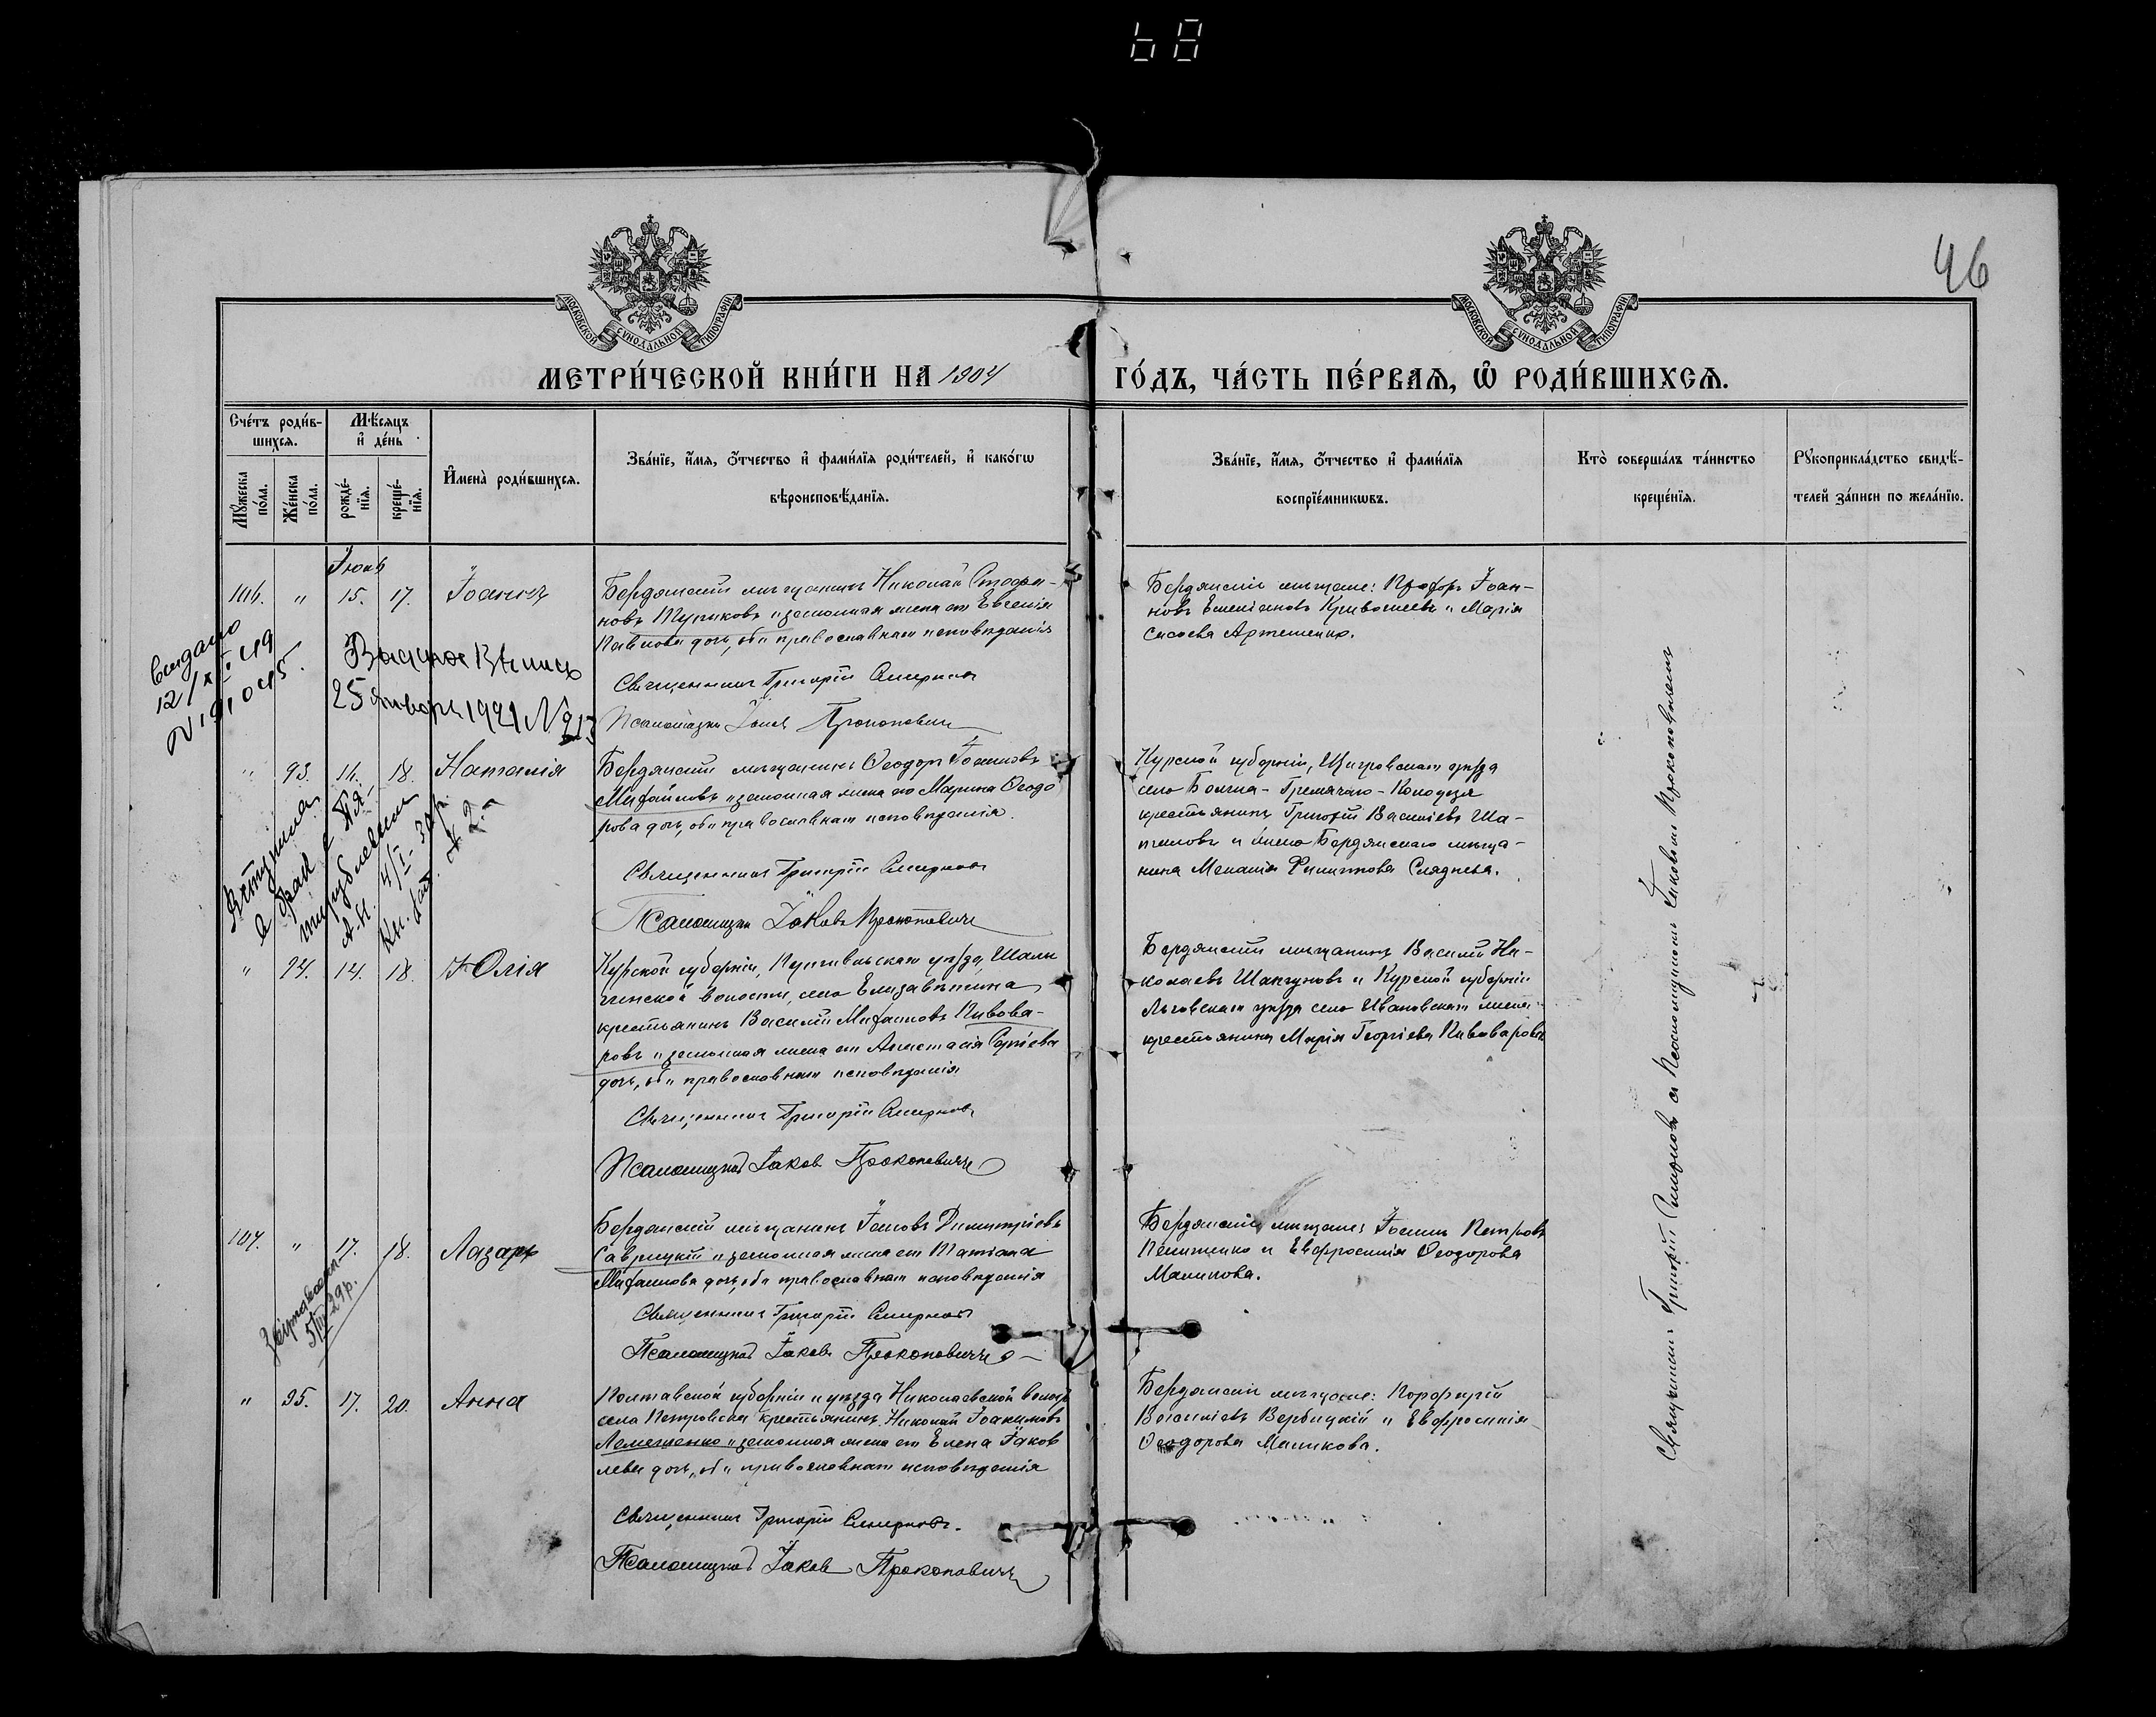 46
МОСКОВСКОЙ СѴНОДАЛЬНОЙ ТИПОГРАФІИ
МОСКОВСКОЙ СѴНОДАЛЬНОЙ ТИПОГРАФІИ
МЕТРИ́ЧЕСКОЙ КНИ́ГИ НА 1904 ГО́ДЪ, ЧА́СТЬ ПЕ́РВАѦ, Ѡ РОДИ́ВШИХСѦ.
Сче́тъ роди́в-
шихсѧ.
Мꙋ́жеска по́ла.
Же́нска по́ла.
Мѣ́сѧцъ и҆ де́нь
рожде́-
нїѧ.
креще́-
нїѧ.
И҆мена̀ роди́вшихсѧ.
Зва́нїе, и҆́мѧ, ѻ҆́тчество и҆ фами́лїѧ роди́телей, и҆ како́гѡ
вѣроисповѣ́данїѧ.
Зва́нїе, и҆́мѧ, ѻ҆́тчество и҆ фами́лїѧ
воспрїе́мникѡвъ.
Кто̀ соверша́лъ та́инство
креще́нїѧ.
Рꙋкоприкла́дство свидѣ́-
телей за́писи по жела́нїю.
Іюнь
106. " 15. 17. Іоаннъ
Бердянскій мѣщанинъ Николай Стефа-
новъ и законная жена его Евгенія
Павлова дочь, оба православнаго исповѣданія
Священникъ Григорій Смирновъ
Псаломщикъ Іаковъ Прокоповичъ
Бердянскіе мѣщане: Іоан-
новъ и Марія
Сысоева Артеменко.
Выдано
12/XI 19
25 января 1921 № 213
" 93. 16. 18. Наталія
Бердянскій мѣщанинъ Ѳеодоръ Іоанновъ
Михайловъ и законная жена его Марина Ѳеодо
рова дочь, оба православнаго исповѣданія.
Священникъ Григорій Смирновъ
Псаломщикъ Іаковъ Прокоповичъ
Курской губерніи, Щигровскаго уѣзда
село Гремячаго-Колодезя
крестьянинъ Григорій Василіевъ Ша-
тиловъ и жена Бердянскаго мѣща-
нина Меланія Филиппова Сляднева.
Вступила
в брак с
" 94. 14. 18. Юлія
Курской губерніи, Путивльскаго уѣзда,
волости, села Елизаветина
крестьянинъ Василій Михаиловъ Пивова-
ровъ и законная жена его Анастасія Сергіева
дочь, оба православнаго исповѣданія
Священникъ Григорій Смирновъ
Псаломщикъ Іаковъ Прокоповичъ
Бердянскій мѣщанинъ Василій Ни-
колаевъ Шапгуновъ и Курской губерніи
Льговскаго уѣзда села Ивановскаго жена
крестьянина Марія Георгіева Пивоварова
107. " 17. 18. Лазарь
Бердянскій мѣщанинъ Іаковъ Димитріевъ
Саврицкій и законная жена его Татіана
Михаилова дочь, оба православнаго исповѣданія
Священникъ Григорій Смирновъ
Псаломщикъ Іаковъ Прокоповичъ
Бердянскіе мѣщане: Іоаннъ Петровъ
и Евфросинія Ѳеодорова
Маликова.
29р.
" 95. 17. 20. Анна
Полтавской губерніи и уѣзда Николаевской волости
села Петровска крестьянинъ Николай Іоакимовъ
Лемешенко и законная жена его Елена Іаков
лева дочь, оба православнаго исповѣданія
Священникъ Григорій Смирновъ.
Псаломщикъ Іаковъ Прокоповичъ
Бердянскіе мѣщане: Порфирій
Василіевъ Вербицкій и Евфросинія
Ѳеодорова Маликова.
Священникъ Григорій Смирновъ съ Псаломщикомъ Іаковомъ Прокоповичемъ